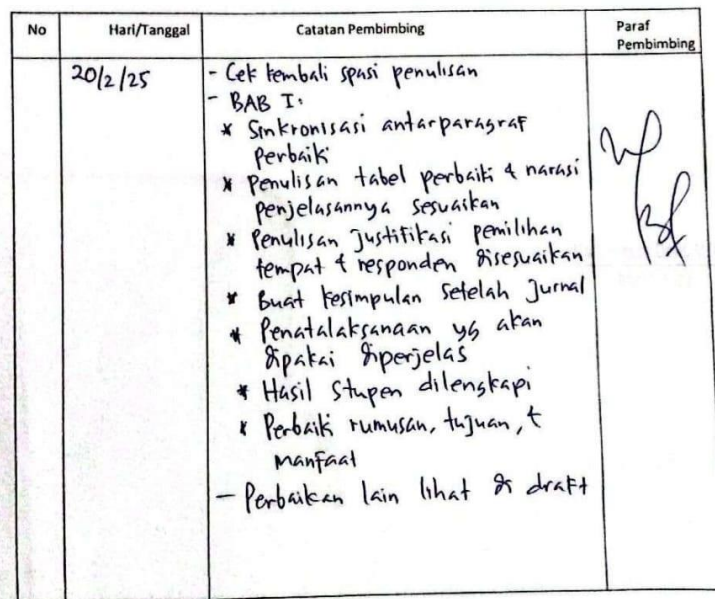 No Hari/Tanggal Catatan Pembimbing Paraf
Pembimbing
20/2/25 - Cek kembali spasi penulisan
- BAB I:
* Sinkronisasi antarparagraf
perbaiki
* Penulisan tabel perbaiki & narasi
penjelasannya sesuaikan
* Penulisan Justifikasi pemilihan
tempat & responden disesuaikan
* Buat kesimpulan setelah Jurnal
* Penatalaksanaan yg akan
dipakai diperjelas
* Hasil Stupen dilengkapi
* Perbaiki rumusan, tujuan, &
manfaat
- Perbaikan lain lihat di draft